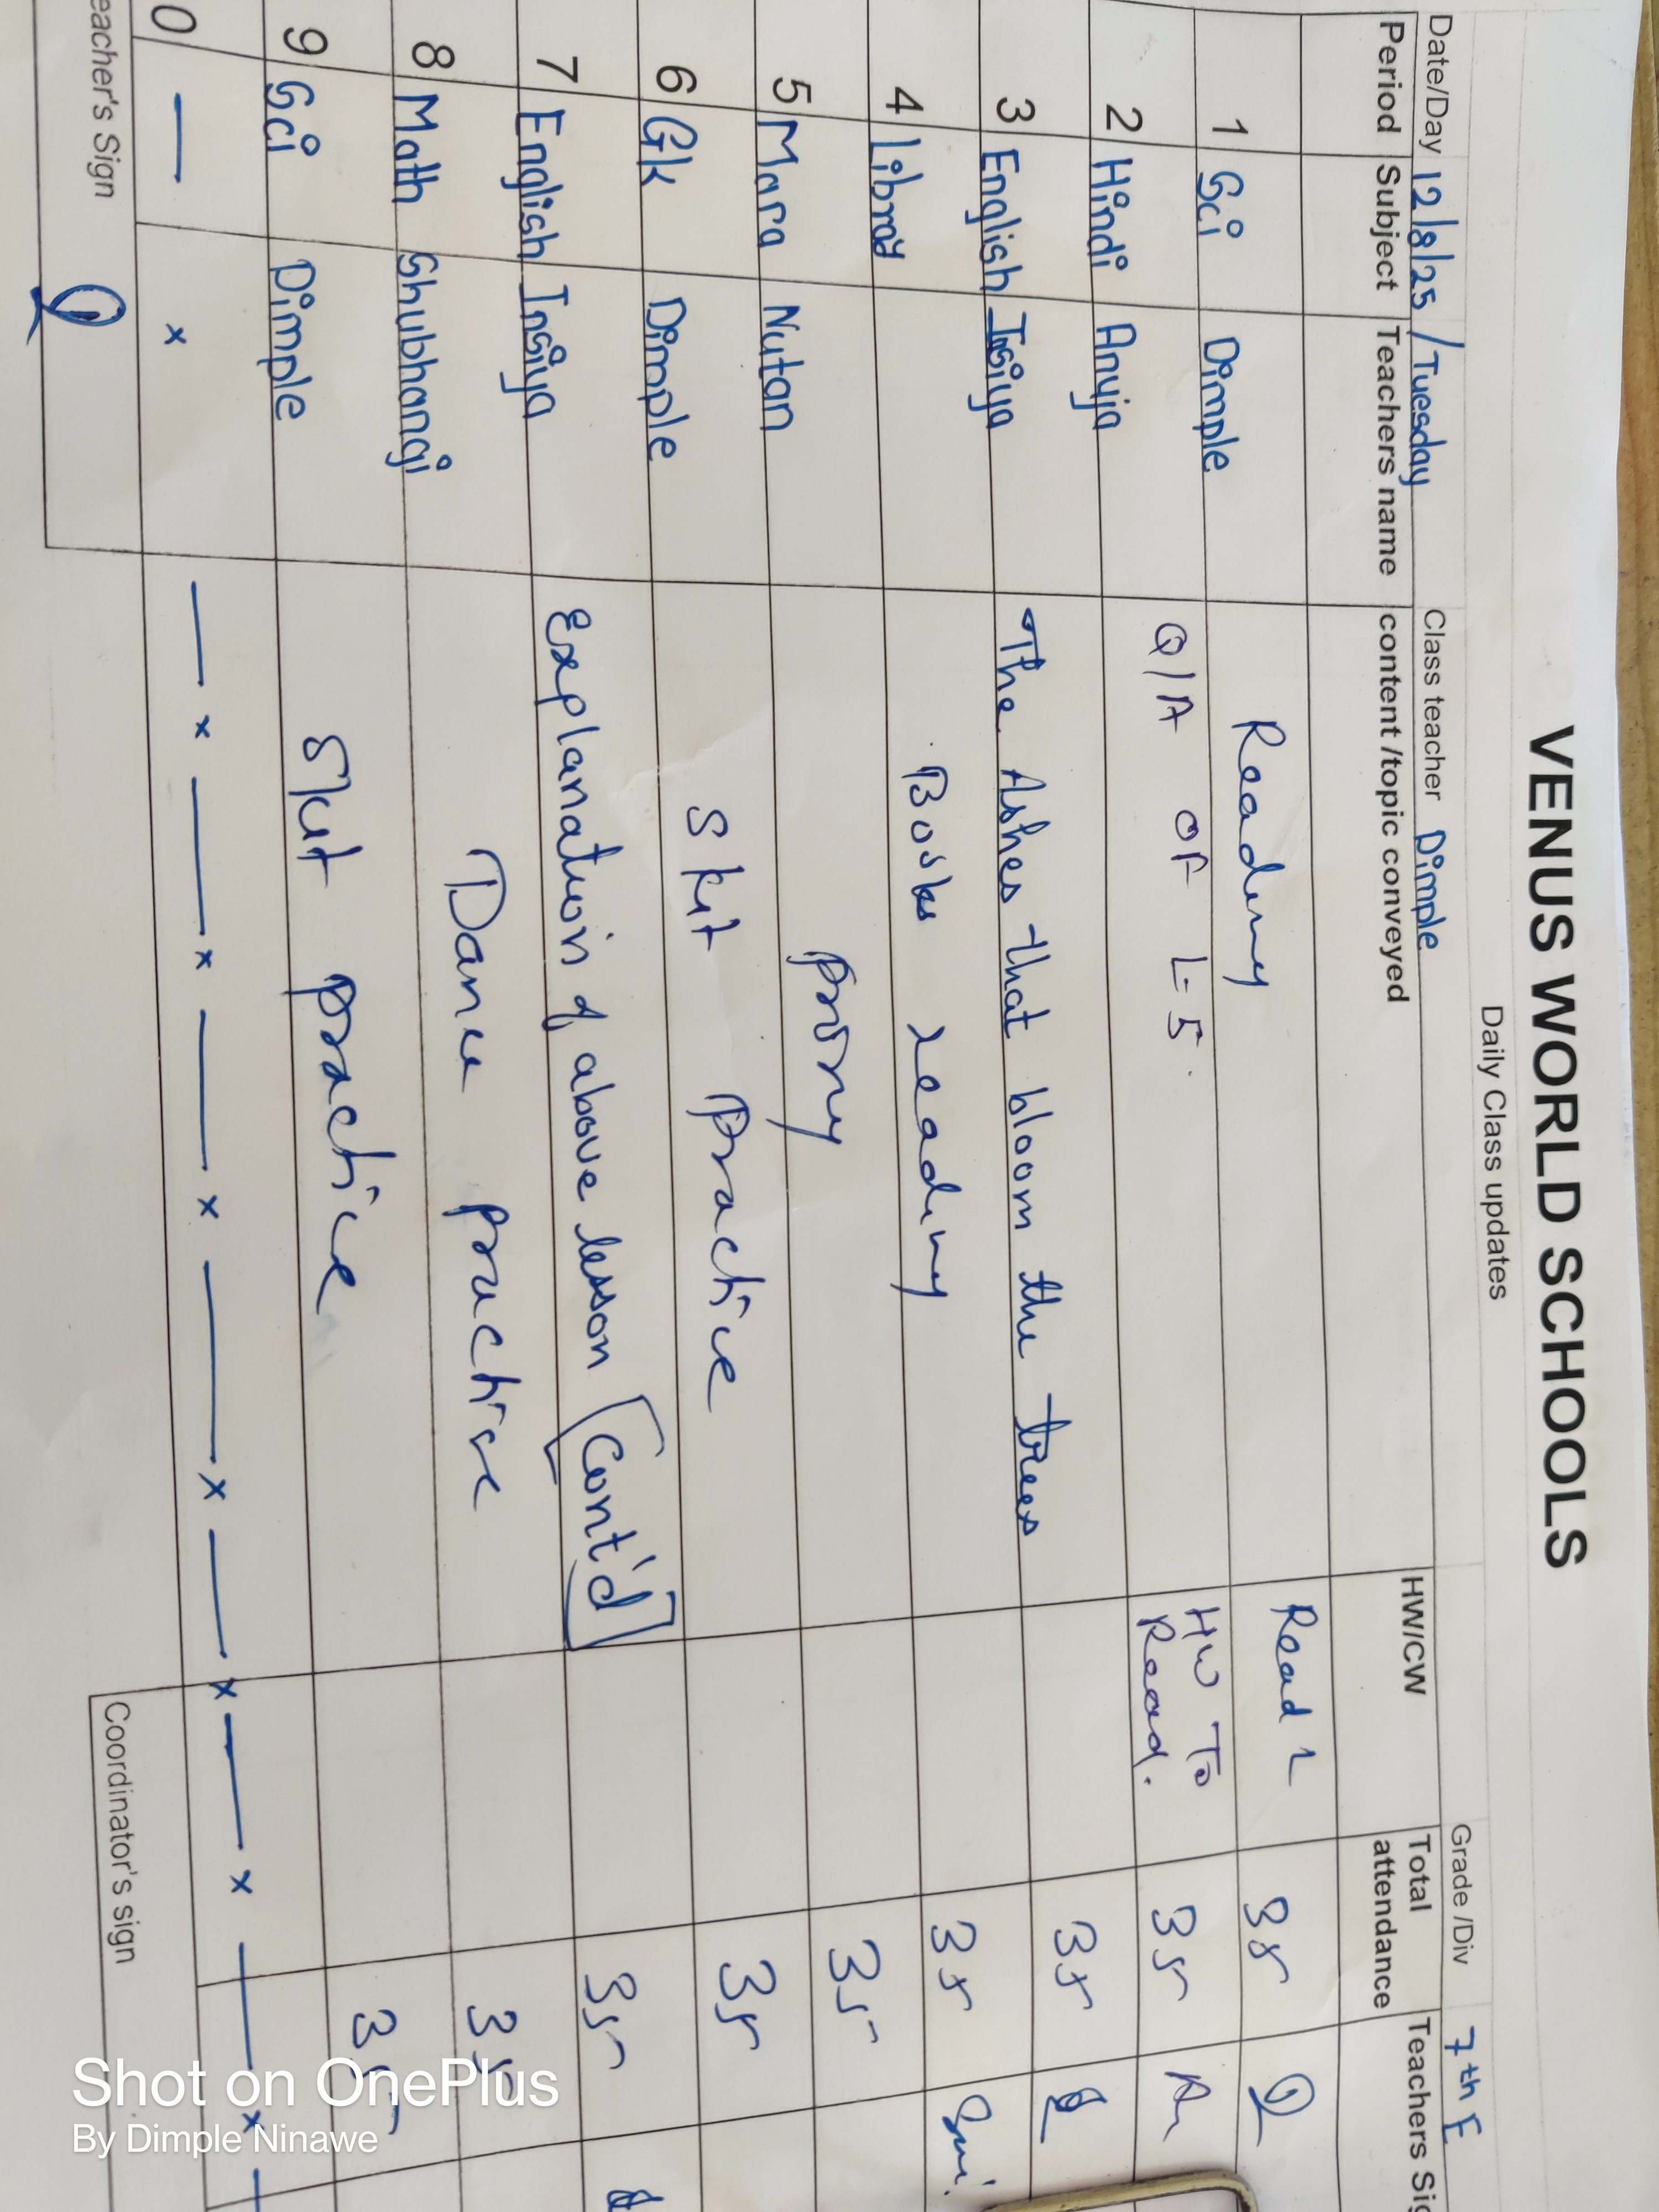 VENUS WORLD SCHOOLS
Daily Class updates
Date/Day 12/8/25 / Tuesday Class teacher Dimple Grade /Div 7th E
Period Subject Teachers name content /topic conveyed HW/CW Total attendance Teachers
1 Sci Dimple Reading Read 35
2 Hindi Anuja Q/A OF L-5. HW To Read. 35
3 English Insiya The Ashes that bloom the trees 35
4 Libray Books reading 35
5 Mara Nutan 35
6 Gk Dimple Skit Practice 35
7 English Insiya Explanation of above lesson [Cont'd] 35
8 Math Shubhangi Dance practice 35
9 Sci Dimple Skit practice 35
0 — x — x — x — x — x — x — x — x — x —
eacher's Sign Coordinator's sign
Shot on OnePlus
By Dimple Ninawe